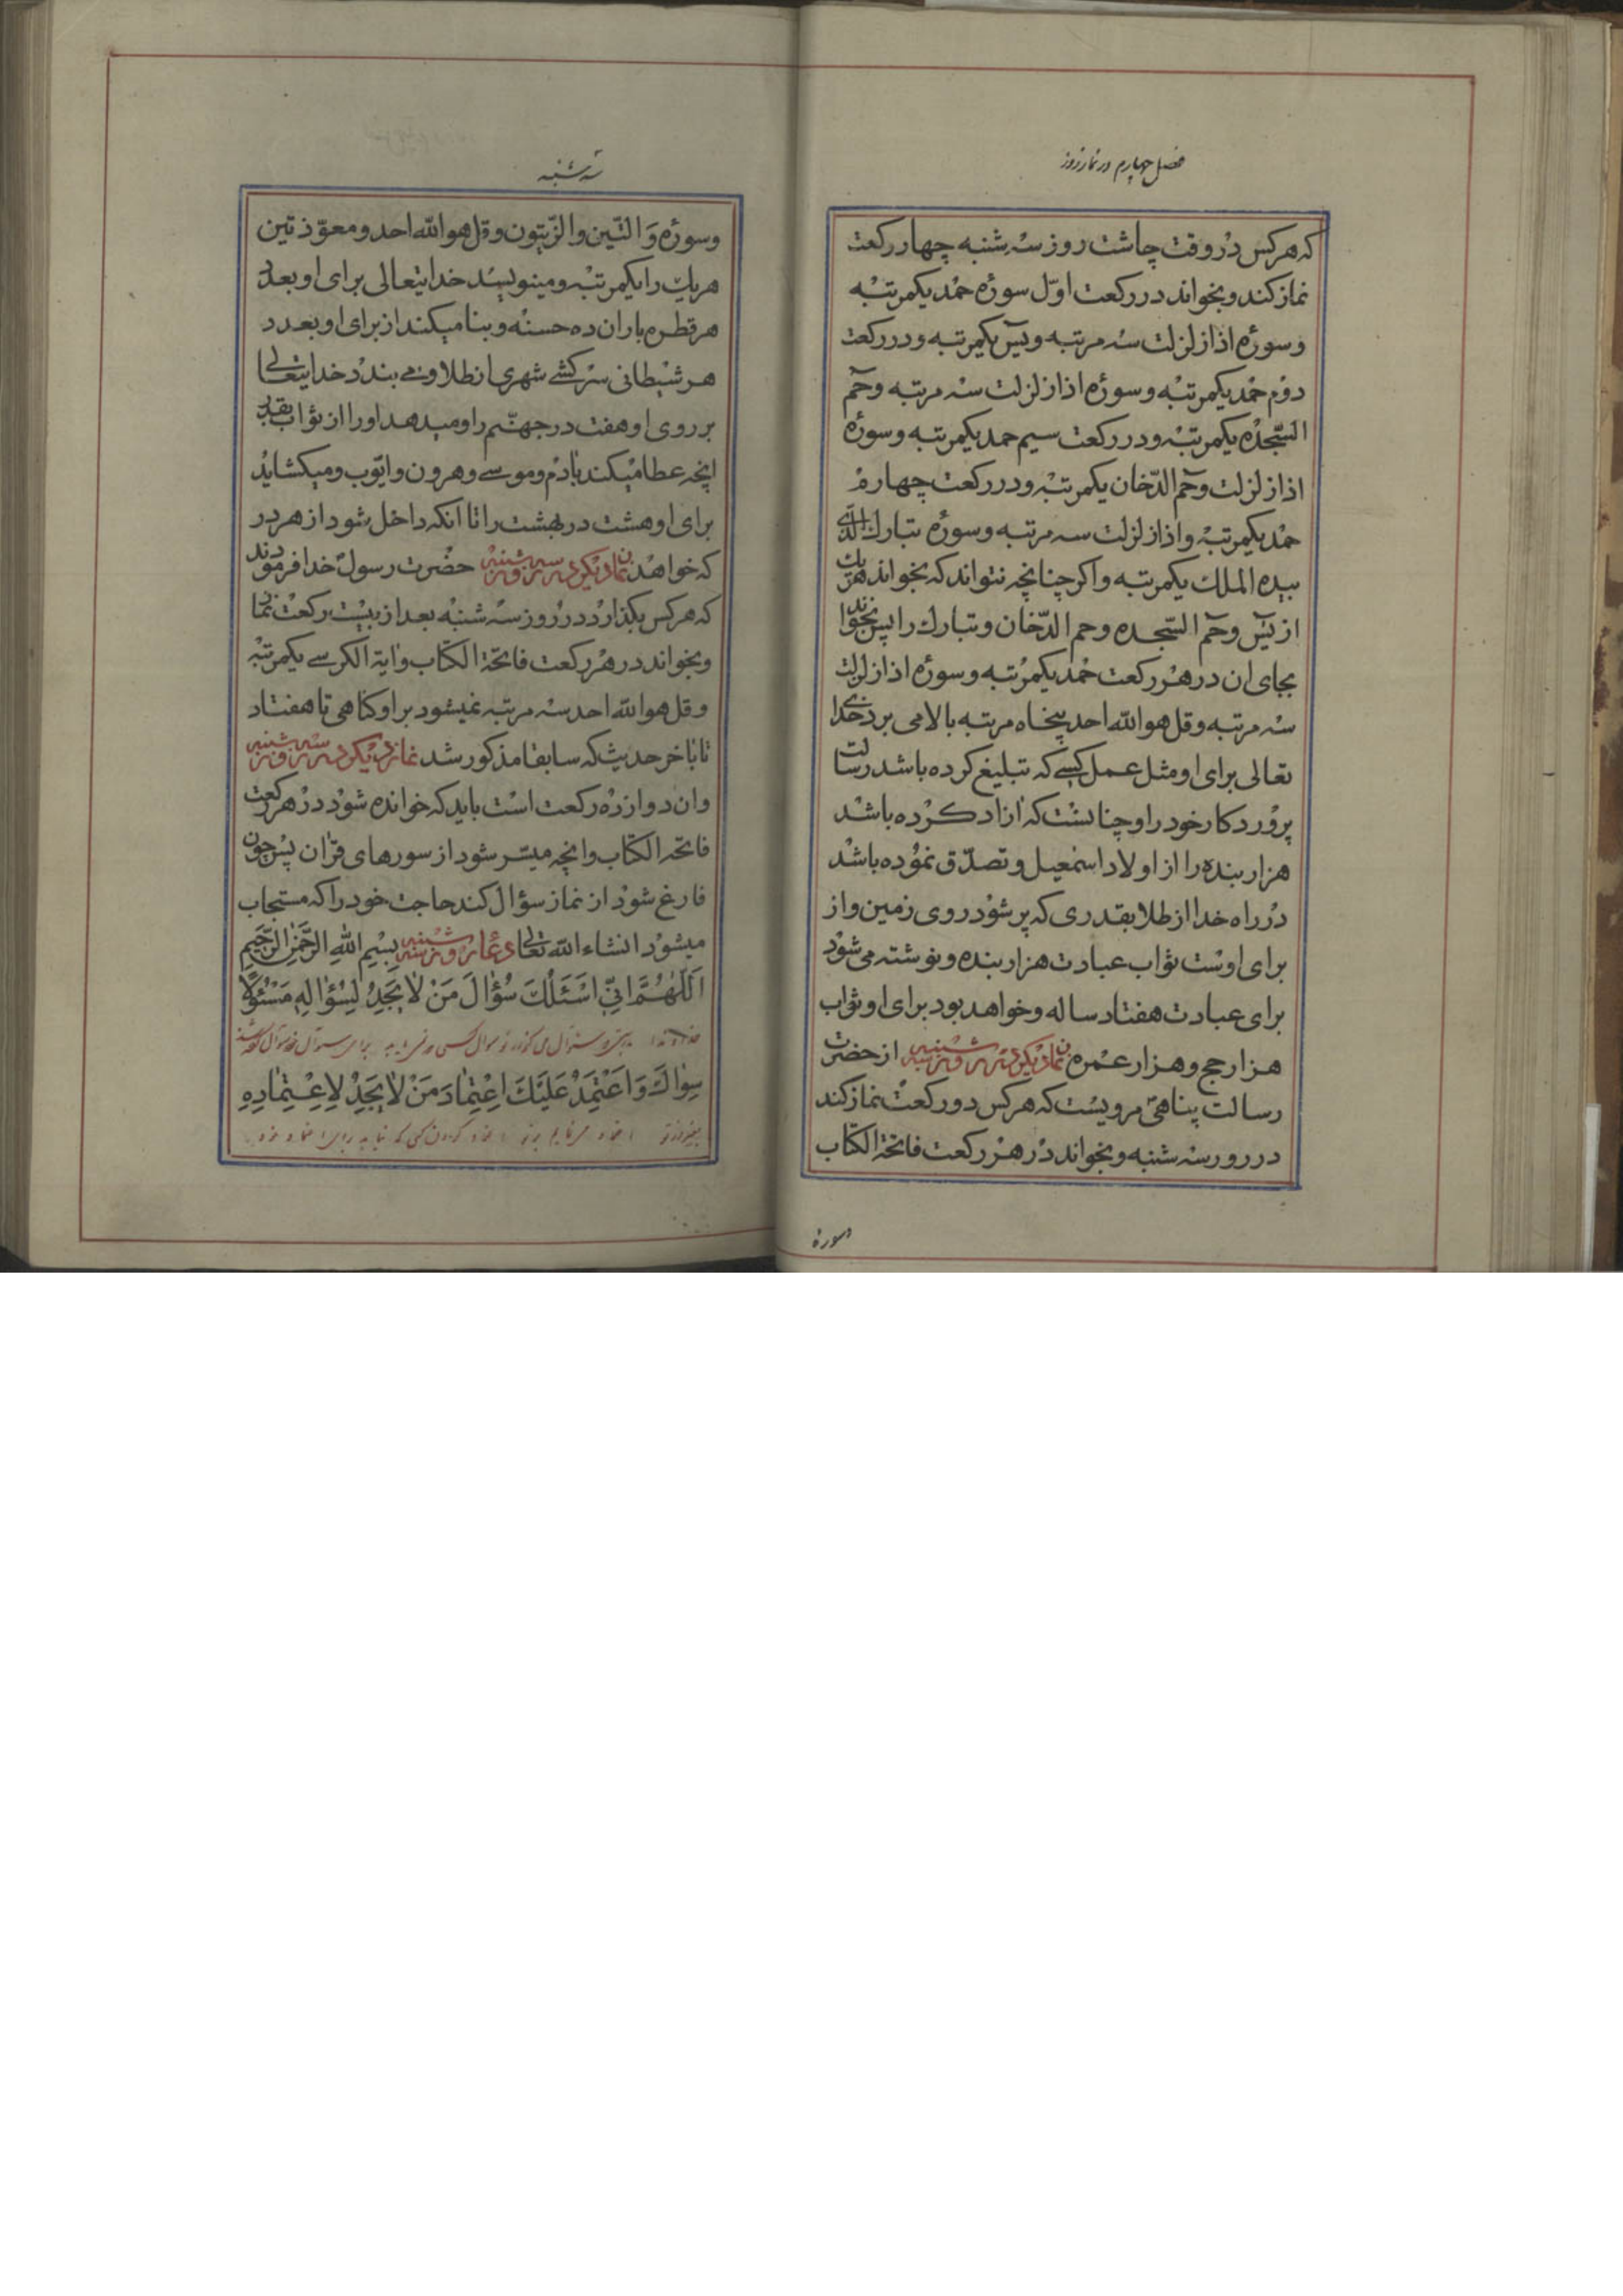 فصل چهارم در نماز روز
که هرکس در وقت چاشت روز سه شنبه چهار رکعت
نماز کند و بخواند در رکعت اوّل سورهٔ حمد یکمرتبه
و سورهٔ اذا زلزلت سه مرتبه و یٓس یکمرتبه و در رکعت
دوم حمد یکمرتبه و سورهٔ اذا زلزلت سه مرتبه و حٓم
السّجده یکمرتبه و در رکعت سیم حمد یکمرتبه و سورهٔ
اذا زلزلت و حٓم الدّخان یکمرتبه و در رکعت چهارم
حمد یکمرتبه و اذا زلزلت سه مرتبه و سورهٔ تبارك الّذی
بیده الملك یکمرتبه و اکر چنانچه نتواند که بخواند هریك
از یٓس و حٓم السّجده و حم الدّخان و تبارك را پس بخواند
بجای ان در هر رکعت حمد یکمرتبه و سورهٔ اذا زلزلت
سه مرتبه و قل هو الله احد پنجاه مرتبه بالا می برد خدای
تعالی برای او مثل عمل کسی که تبلیغ کرده باشد رسالت
پروردکار خود را و چنانست که ازاد کرده باشد
هزار بنده را از اولاد اسمعیل و تصدّق نموده باشد
در راه خدا از طلا بقدری که پر شود روی زمین و از
برای اوست ثواب عبادت هزار بنده و نوشته می شود
برای عبادت هفتاد ساله و خواهد بود برای او ثواب
هزار حج و هزار عمره نماز دیکر در روز سه شنبه از حضرت
رسالت پناهی مرویست که هرکس دو رکعت نماز کند
در روز سه شنبه و بخواند در هر رکعت فاتحة الکتاب
وسوره
سه شنبه
و سورهٔ وَ التّین و الزّیتون و قل هو الله احد و معوّذتین
هریك را یکمرتبه و مینویسد خدایتعالی برای او بعدد
هر قطره باران ده حسنه و بنا میکند از برای او بعدد
هر شیطانی سرکشی شهری از طلا و می بندد خدایتعالی
بر روی او هفت در جهنّم را و میدهد او را از ثواب بقدر
انچه عطا میکند بادم و موسی و هرون و ایّوب و میکشاید
برای او هشت در بهشت را تا انکه داخل شود از هر در
که خواهد نماز دیکر در روز سه شنبه حضرت رسول خدا فرمودند
که هرکس بکذارد در روز سه شنبه بعد از بیست رکعت نماز
و بخواند در هر رکعت فاتحة الکتاب و ایة الکرسی یکمرتبه
و قل هو الله احد سه مرتبه نمیشود بر او کناهی تا هفتاد
تا باخر حدیث که سابقا مذکور شد نماز دیکر در روز سه شنبه
و ان دوازده رکعت است باید که خوانده شود در هر رکعت
فاتحه الکتاب و انچه میسّر شود از سورهای قرٰان پس چون
فارغ شود از نماز سؤال کند حاجت خود را که مستجاب
میشود انشاء الله تعالی دعای روز سه شنبه بِسْمِ اللهِ الرَّحْمٰنِ الرَّحیمِ
اَللّٰهُمَّ اِنّی اَسْئَلُكَ سُؤٰالَ مَنْ لاٰ یَجِدُ لِسُؤٰالِهِ مَسْئُولًا
خداوندا سؤال می کنم از تو سؤال کسی که نمی یابد برای سؤال خود سؤال کرده شده
سِوٰاكَ وَ اَعْتَمِدُ عَلَیْكَ اِعْتِمٰادَ مَنْ لاٰ یَجِدُ لِاِعْتِمٰادِهِ
بغیر از تو اعتماد می نمایم بر تو اعتماد کردن کسی که نیابد برای اعتماد خود